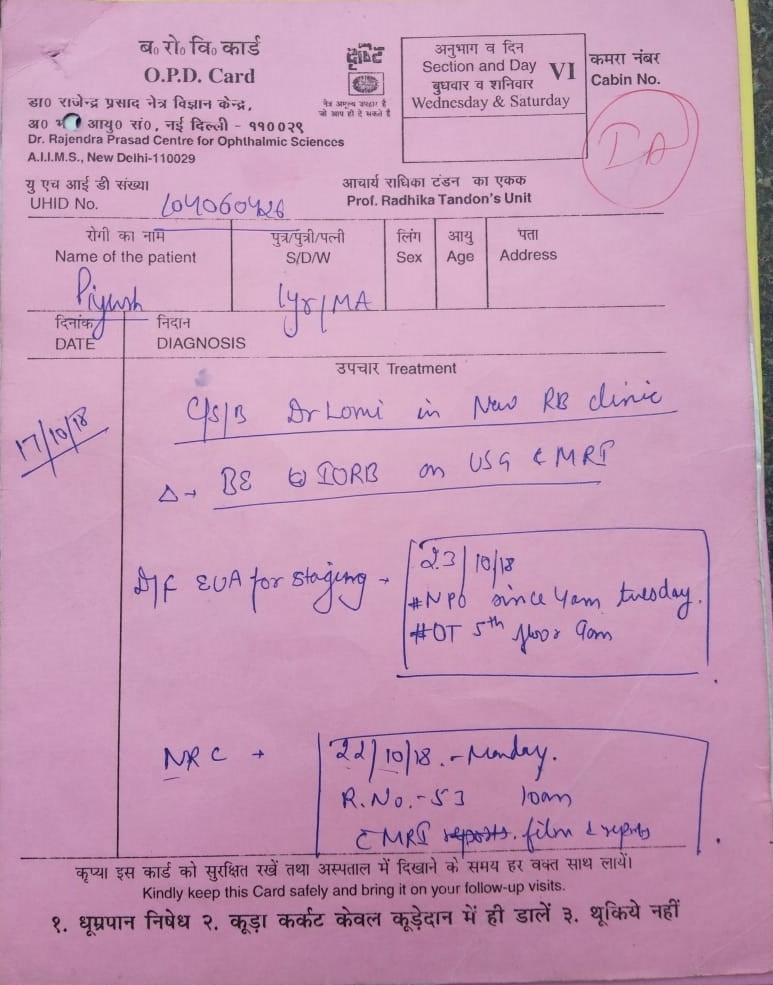 ब० रो० वि० कार्ड
O.P.D. Card
डा० राजेन्द्र प्रसाद नेत्र विज्ञान केन्द्र,
अ० भ० आयु० सं०, नई दिल्ली - ११००२९
Dr. Rajendra Prasad Centre for Ophthalmic Sciences
A.I.I.M.S., New Delhi-110029
दृष्टि
नेत्र अमूल्य उपहार है
जो आप ही दे सकते है
अनुभाग व दिन
Section and Day VI
बुधवार व शनिवार
Wednesday & Saturday
कमरा नंबर
Cabin No.
यु एच आई डी संख्या
UHID No. 104060426
आचार्य राधिका टंडन का एकक
Prof. Radhika Tandon's Unit
रोगी का नाम पुत्र/पुत्री/पत्नी लिंग आयु पता
Name of the patient S/D/W Sex Age Address
Piyush 1yr/MA
दिनांक निदान
DATE DIAGNOSIS
उपचार Treatment
17/10/18
C/S/B Dr Lomi in New RB clinic
Δ → BE IORB on USG & MRI
EUA for staging → 23/10/18
#NPO since 4am tuesday.
#OT 5th floor 9am
NRC → 22/10/18. - Monday.
R.No.-53 10am
c̄ MRI reports. film & reports
कृप्या इस कार्ड को सुरक्षित रखें तथा अस्पताल में दिखाने के समय हर वक्त साथ लायें।
Kindly keep this Card safely and bring it on your follow-up visits.
१. धूम्रपान निषेध २. कूड़ा कर्कट केवल कूड़ेदान में ही डालें ३. थूकिये नहीं